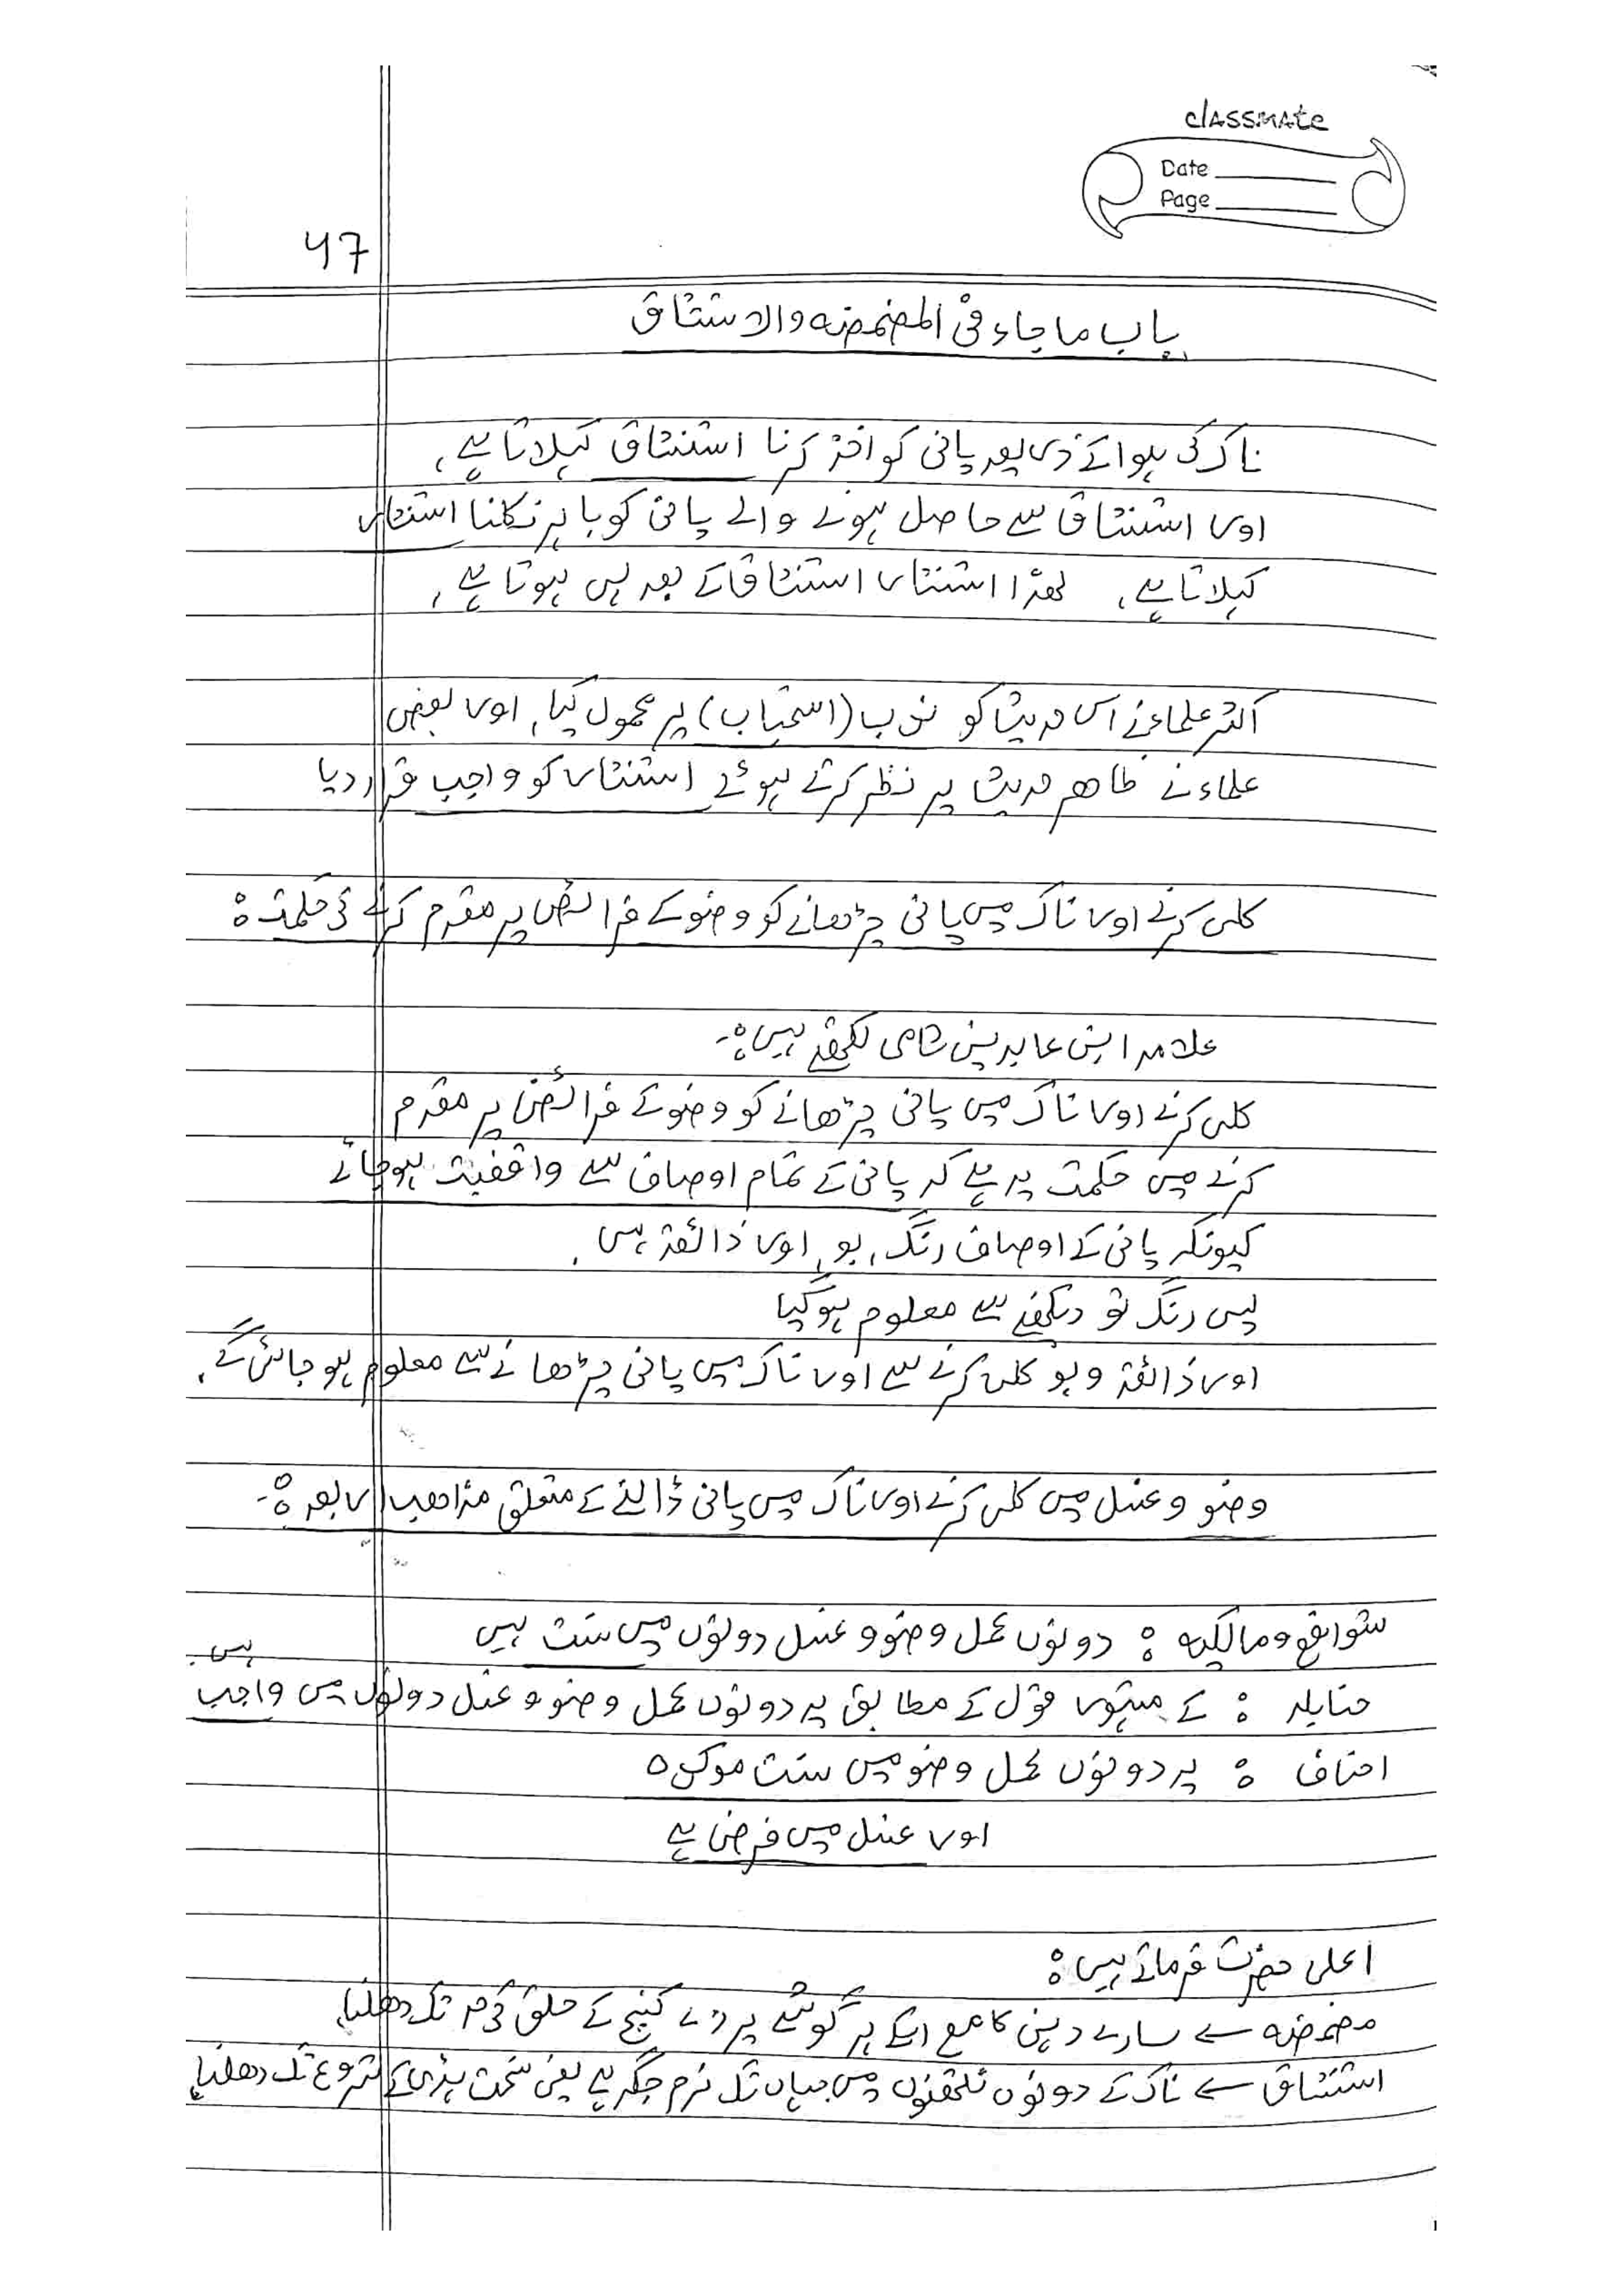 classmate
Date
Page
47
باب ما جاء فی المضمضہ والاستنشاق
ناک کی ہوا کے ذریعہ پانی کو اخذ کرنا استنشاق کہلاتا ہے،
اور استنشاق سے حاصل ہونے والے پانی کو باہر نکلنا استنثار
کہلاتا ہے، لھذا استنثار استنشاق کے بعد ہی ہوتا ہے،
اکثر علماء نے اس حدیث کو ندب (استحباب) پر محمول کیا، اور بعض
علماء نے ظاھر حدیث پر نظر کرتے ہوئے استنثار کو واجب قرار دیا
کلی کرنے اور ناک میں پانی چڑھانے کو وضو کے فرائض پر مقدم کرنے کی حکمت :
علامہ ابن عابدین شامی لکھتے ہیں :-
کلی کرنے اور ناک میں پانی چڑھانے کو وضو کے فرائض پر مقدم
کرنے میں حکمت یہ ہے کہ پانی کے تمام اوصاف سے واقفیت ہو جائے
کیونکہ پانی کے اوصاف رنگ، بو، اور ذائقۃ ہیں ،
پس رنگ تو دیکھنے سے معلوم ہو گیا
اور ذائقۃ و بو کلی کرنے سے اور ناک میں پانی چڑھانے سے معلوم ہو جائیں گے،
وضو و غسل میں کلی کرنے اور ناک میں پانی ڈالنے کے متعلق مذاھب اربعہ :-
شوافع و مالکیہ : دونوں عمل وضو و غسل دونوں میں سنت ہیں
حنابلہ : کے مشہور قول کے مطابق یہ دونوں عمل وضو و غسل دونوں میں واجب ہیں۔
احناف : یہ دونوں عمل وضو میں سنت موکدہ
اور غسل میں فرض ہے
اعلی حضرت فرماتے ہیں :
مضمضہ سے سارے دہن کا مع اسکے ہر گوشے پرزے کنج کے حلق کی حد تک دھلنا،
استنشاق سے ناک کے دونوں نتھنوں میں جہاں تک نرم جگہ ہے یعنی سخت ہڈی کے شروع تک دھلنا،